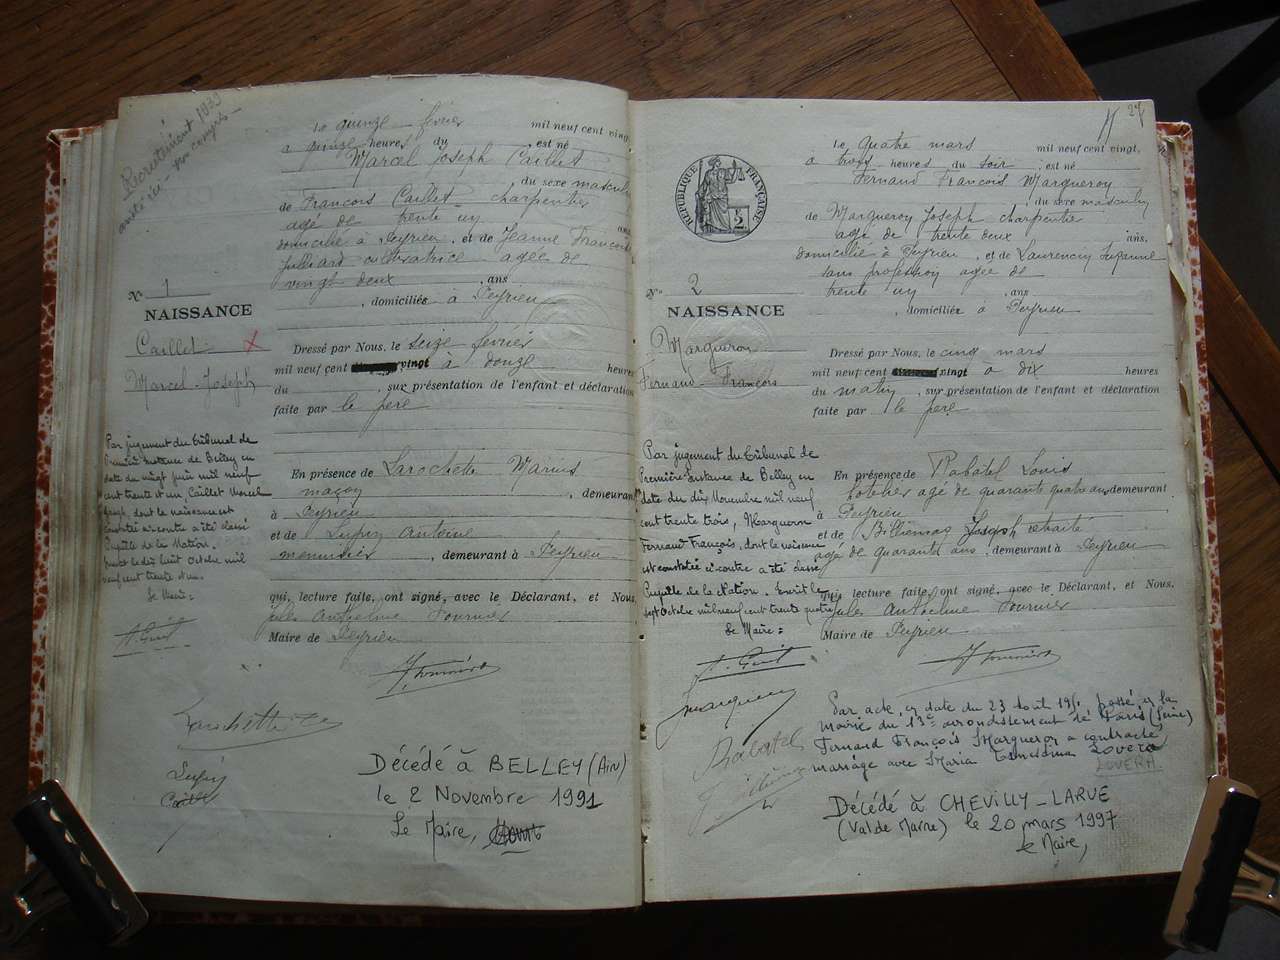 Recrutement 1939
Le quinze février mil neuf cent vingt,
à onze heures du est né
Marcel Joseph Caillet
du sexe masculin
de François Caillet charpentier
agé de trente un ans
domicilié à Peyrieu, et de Jeanne Françoise
Julliard cultivatrice agée de
vingt deux, ans
, domiciliés à Peyrieu
No 1
NAISSANCE
Caillet
Marcel-Joseph
Dressé par Nous, le seize février
mil neuf cent vingt à douze heures
du , sur présentation de l'enfant et déclaration
faite par le père
Par jugement du Tribunal de
Première instance de Belley en
date du vingt juin mil neuf
cent trente et un Caillet Marcel
Joseph, dont la naissance est
constatée ci-contre a été classé
Pupille de la Nation.
Inscrit le dix huit Octobre mil
neuf cent trente et un.
Le Maire:
En présence de Larochette Marius
maçon , demeurant
à Peyrieu
et de Lupin Antoine
menuisier , demeurant à Peyrieu
qui, lecture faite, ont signé, avec le Déclarant, et Nous,
Jules Anthelme Fournier
Maire de Peyrieu
Larochette
Lupin
Caillet
Décédé à BELLEY (Ain)
le 2 Novembre 1991
Le Maire,
27
RÉPUBLIQUE FRANÇAISE
Le quatre mars mil neuf cent vingt,
à trois heures du soir, est né
Fernand François Margueron
, du sexe masculin
de Margueron Joseph charpentier
agé de trente deux ans,
domicilié à Peyrieu, et de Laurencin Suzanne
sans profession agée de
trente un , ans
, domiciliés à Peyrieu
No 2
NAISSANCE
Margueron
Fernand-François
Dressé par Nous, le cinq mars
mil neuf cent vingt à dix heures
du matin, sur présentation de l'enfant et déclaration
faite par le père
Par jugement du Tribunal de
Première Instance de Belley en
date du dix Novembre mil neuf
cent trente trois, Margueron
Fernand François, dont la naissance
est constatée ci-contre a été classé
Pupille de la Nation. Inscrit le
sept Octobre mil neuf cent trente quatre
Le Maire:
En présence de Rabatel Louis
agé de quarante quatre ans, demeurant
à Peyrieu
et de Joseph retraité
agé de quarante ans, demeurant à Peyrieu
qui, lecture faite, ont signé, avec le Déclarant, et Nous,
Jules Anthelme Fournier
Maire de Peyrieu
Margueron
Rabatel
Par acte, en date du 23 Août passé en la
mairie du 13e arrondissement de Paris (Seine)
Fernand François Margueron a contracté
mariage avec Maria LOVERA
LOVERA.
Décédé à CHEVILLY-LARUE
(Val de Marne) le 20 mars 1997
Le Maire,